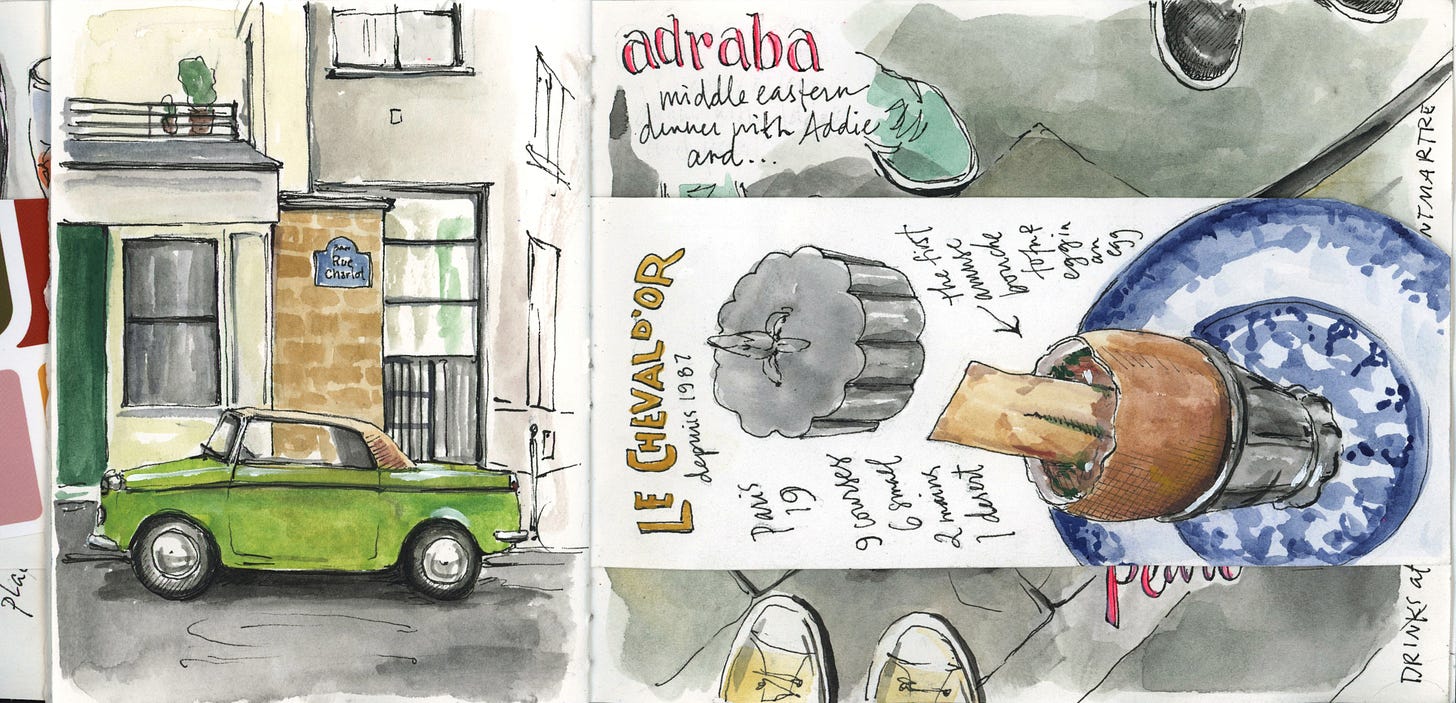 Rue
Charlot
adraba
middle eastern
dinner with Addie
and...
LE CHEVAL D'OR
depuis 1987
the first
amuse
bouche
tofu &
egg in
an
egg
Paris
19
9 courses
6 small
2 mains
1 desert
NTMARTRE
DRINKS at
pla